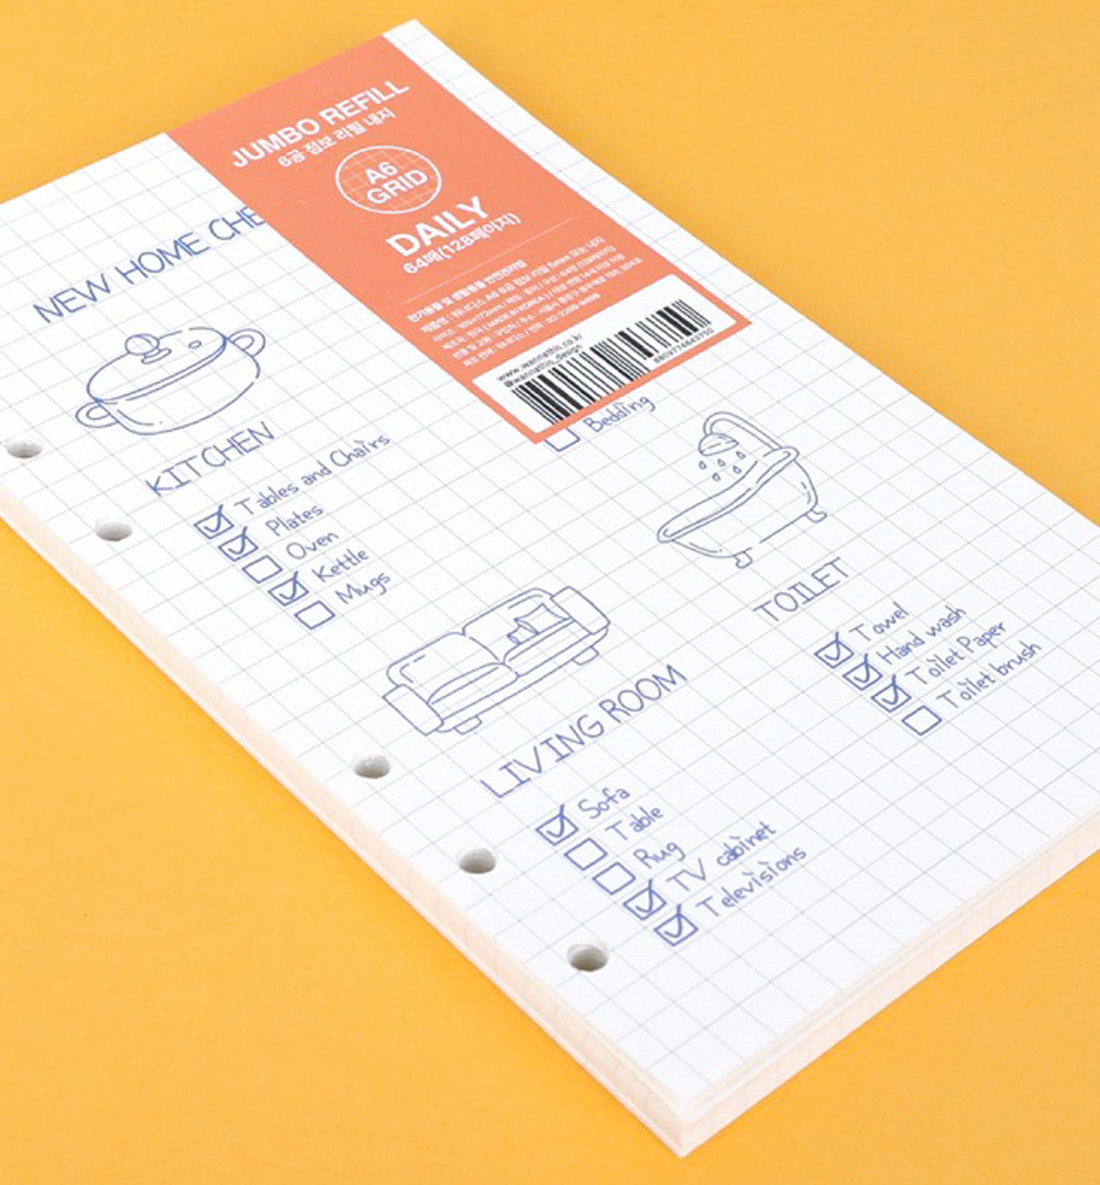 JUMBO REFILL
6공 점보 리필 내지
A6
GRID
DAILY
64매(128페이지)
www.wannathis.co.kr
@wannathis_design
NEW HOME CHE
KITCHEN
Tables and Chairs
Plates
Oven
Kettle
Mugs
Bedding
TOILET
Towel
Hand wash
Toilet Paper
Toilet brush
LIVING ROOM
Sofa
Table
Rug
TV cabinet
Televisions